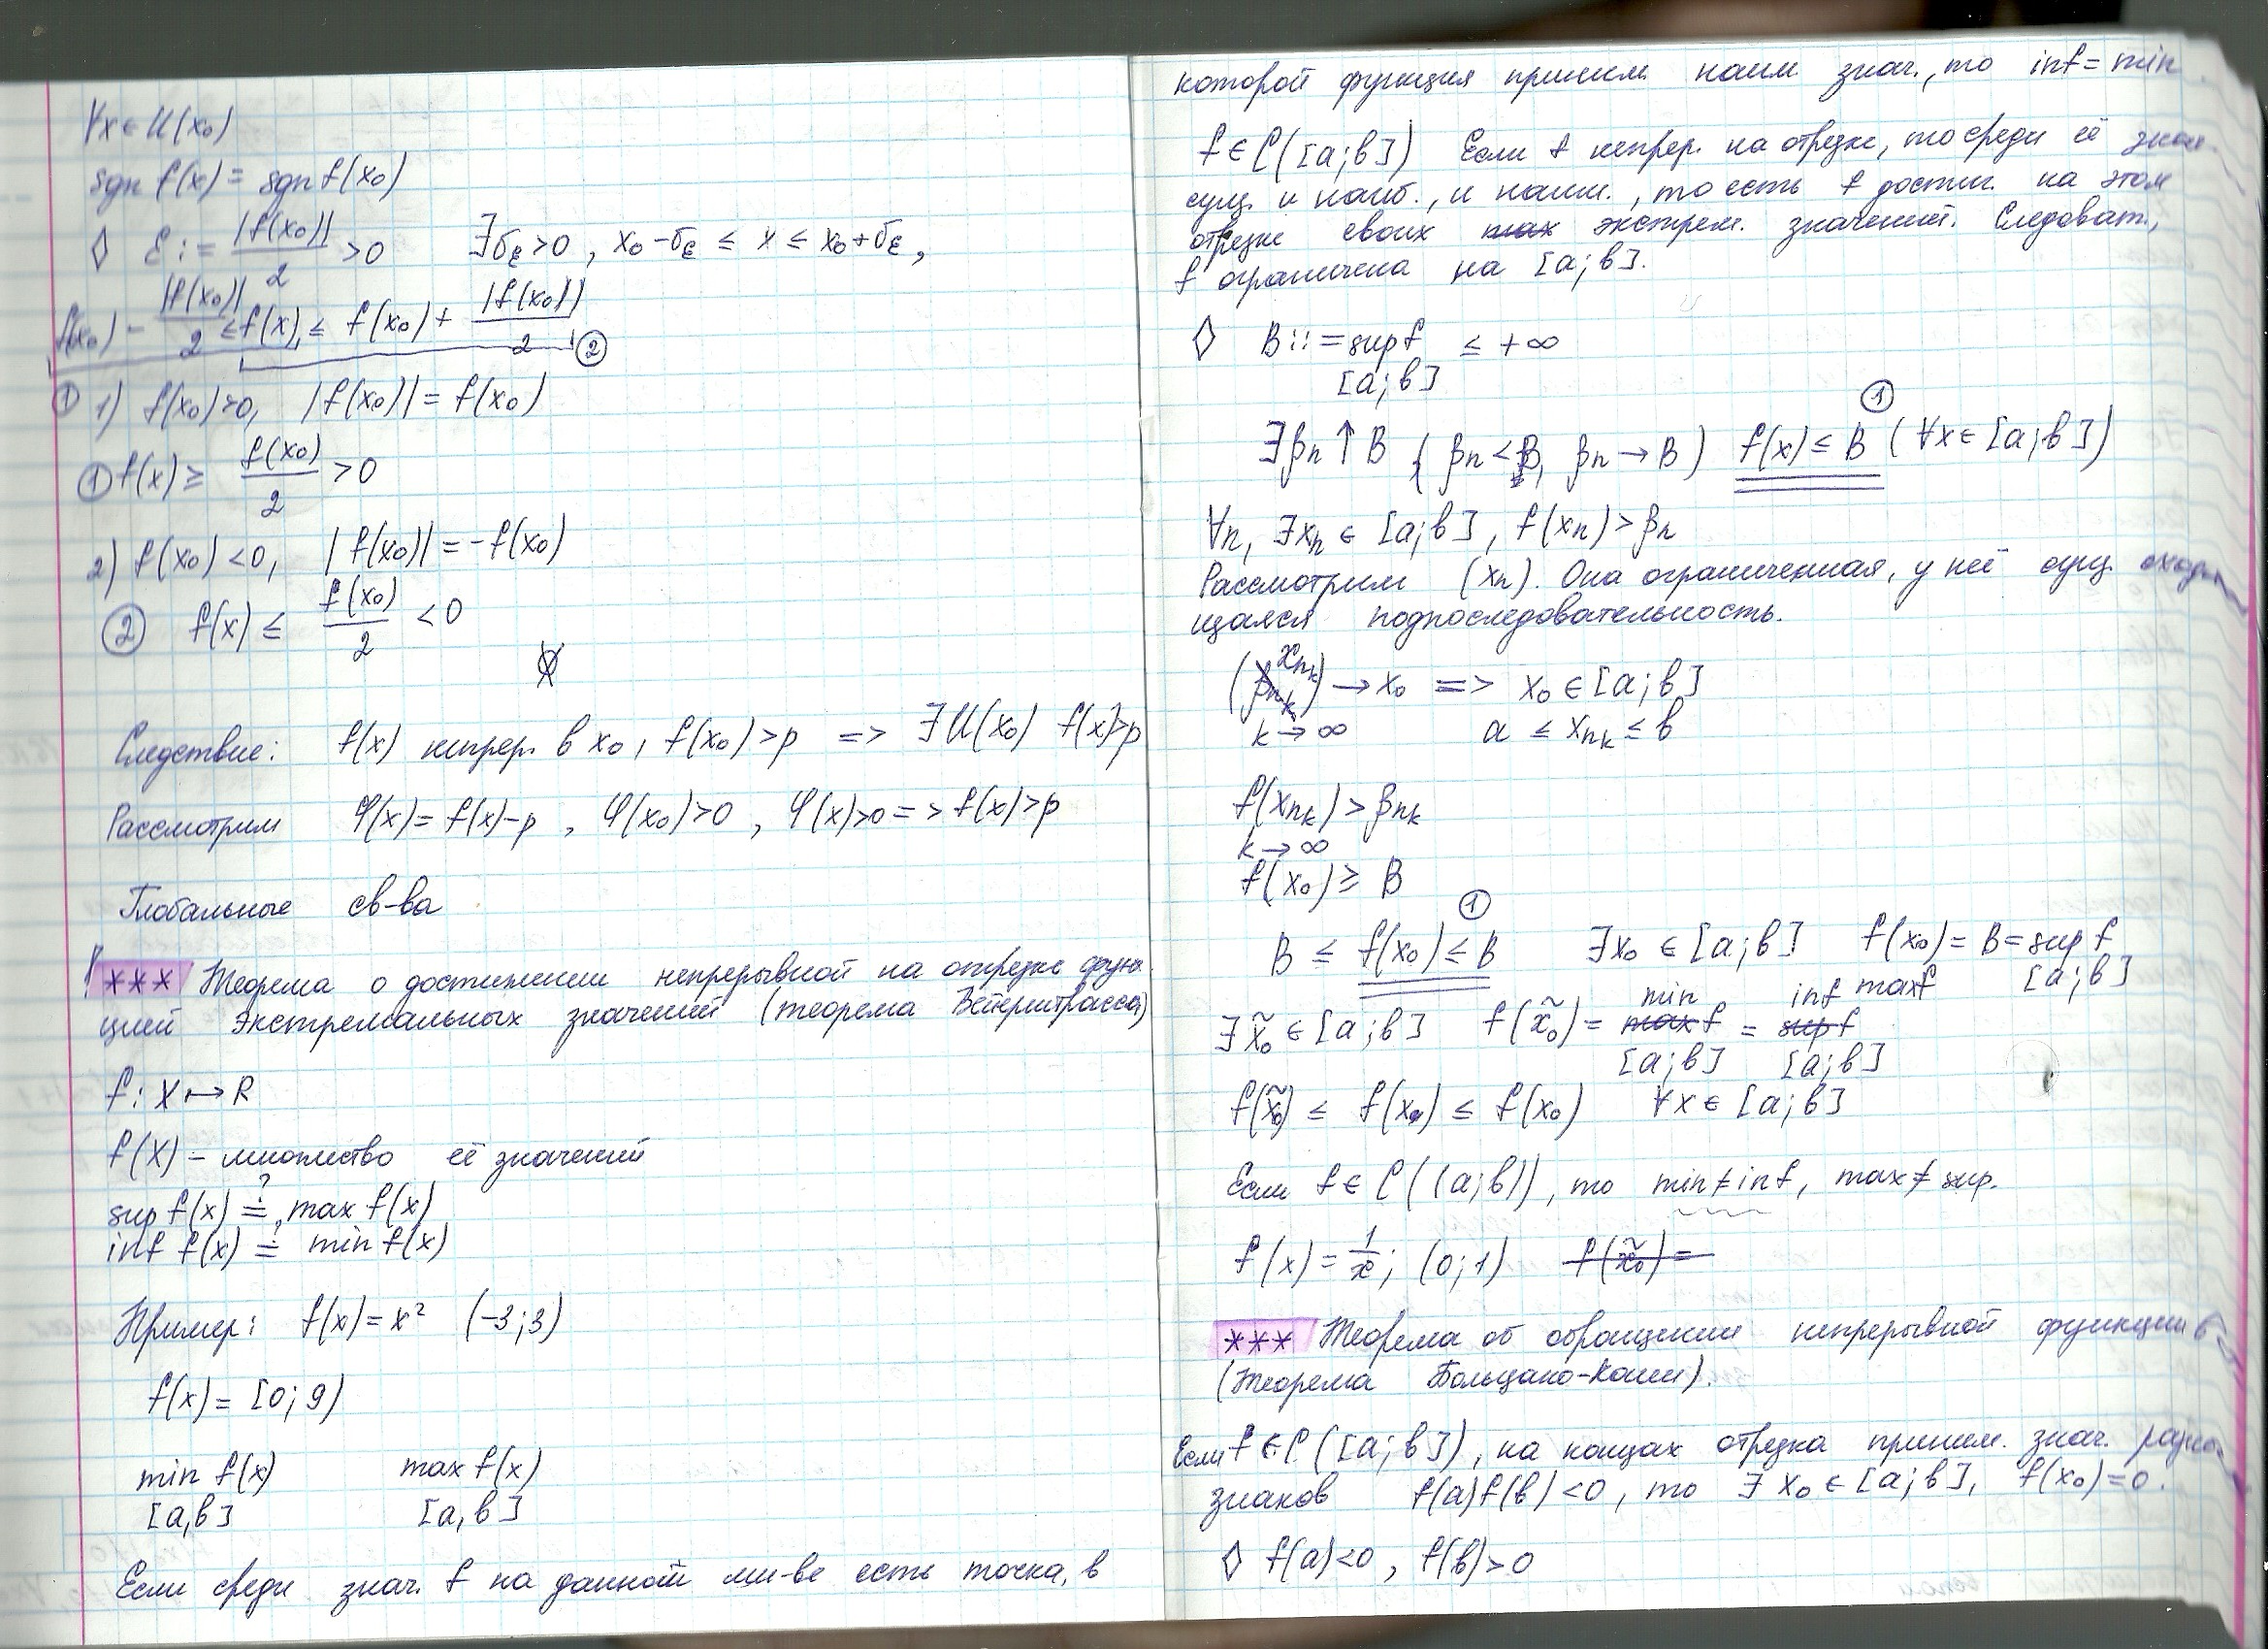 ∀x ∈ U(x₀)
sgn f(x) = sgn f(x₀)
◊ ε := |f(x₀)|/2 > 0 ∃δ_ε > 0, x₀ - δ_ε ≤ x ≤ x₀ + δ_ε,
f(x₀) - |f(x₀)|/2 ≤ f(x) ≤ f(x₀) + |f(x₀)|/2 ②
① 1) f(x₀) > 0, |f(x₀)| = f(x₀)
① f(x) ≥ f(x₀)/2 > 0
2) f(x₀) < 0, |f(x₀)| = -f(x₀)
② f(x) ≤ f(x₀)/2 < 0
Следствие: f(x) непрер. в x₀, f(x₀) > p => ∃U(x₀) f(x) > p
Рассмотрим φ(x) = f(x) - p, φ(x₀) > 0, φ(x) > 0 => f(x) > p
Глобальные св-ва
*** Теорема о достижении непрерывной на отрезке функ
цией экстремальных значений (теорема Вейерштрасса)
f: X ↦ R
f(X) - множество её значений
sup f(x) =? max f(x)
inf f(x) =? min f(x)
Пример: f(x) = x² (-3; 3)
f(x) = [0; 9)
min f(x) max f(x)
[a, b] [a, b]
Если среди знач. f на данной мн-ве есть точка, в
которой функция приним. наим знач., то inf = min
f ∈ C([a; b]) Если f непрер. на отрезке, то среди её знач.
сущ. и наиб., и наим., то есть f достиг. на этом
отрезке своих max экстрем. значений. Следоват.,
f ограничена на [a; b].
◊ B :: = sup f ≤ +∞
[a; b]
①
∃βₙ ↑ B (βₙ < B, βₙ → B) f(x) ≤ B (∀x ∈ [a; b])
∀n, ∃xₙ ∈ [a; b], f(xₙ) > βₙ
Рассмотрим (xₙ). Она ограниченная, у неё сущ. сходя
щаяся подпоследовательность.
(x_{n_k}) → x₀ => x₀ ∈ [a; b]
k → ∞ a ≤ x_{n_k} ≤ b
f(x_{n_k}) > β_{n_k}
k → ∞
f(x₀) ≥ B
①
B ≤ f(x₀) ≤ B ∃x₀ ∈ [a; b] f(x₀) = B = sup f
min inf max f [a; b]
∃x̃₀ ∈ [a; b] f(x̃₀) = max f = sup f
[a; b] [a; b]
f(x̃₀) ≤ f(x) ≤ f(x₀) ∀x ∈ [a; b]
Если f ∈ C((a; b)), то min ≠ inf, max ≠ sup.
f(x) = 1/x; (0; 1) f(x̃₀) =
*** Теорема об обращении непрерывной функции в
(Теорема Больцано-Коши).
Если f ∈ C([a; b]), на концах отрезка приним. знач. разн
знаков f(a)f(b) < 0, то ∃ x₀ ∈ [a; b], f(x₀) = 0.
◊ f(a) < 0, f(b) > 0